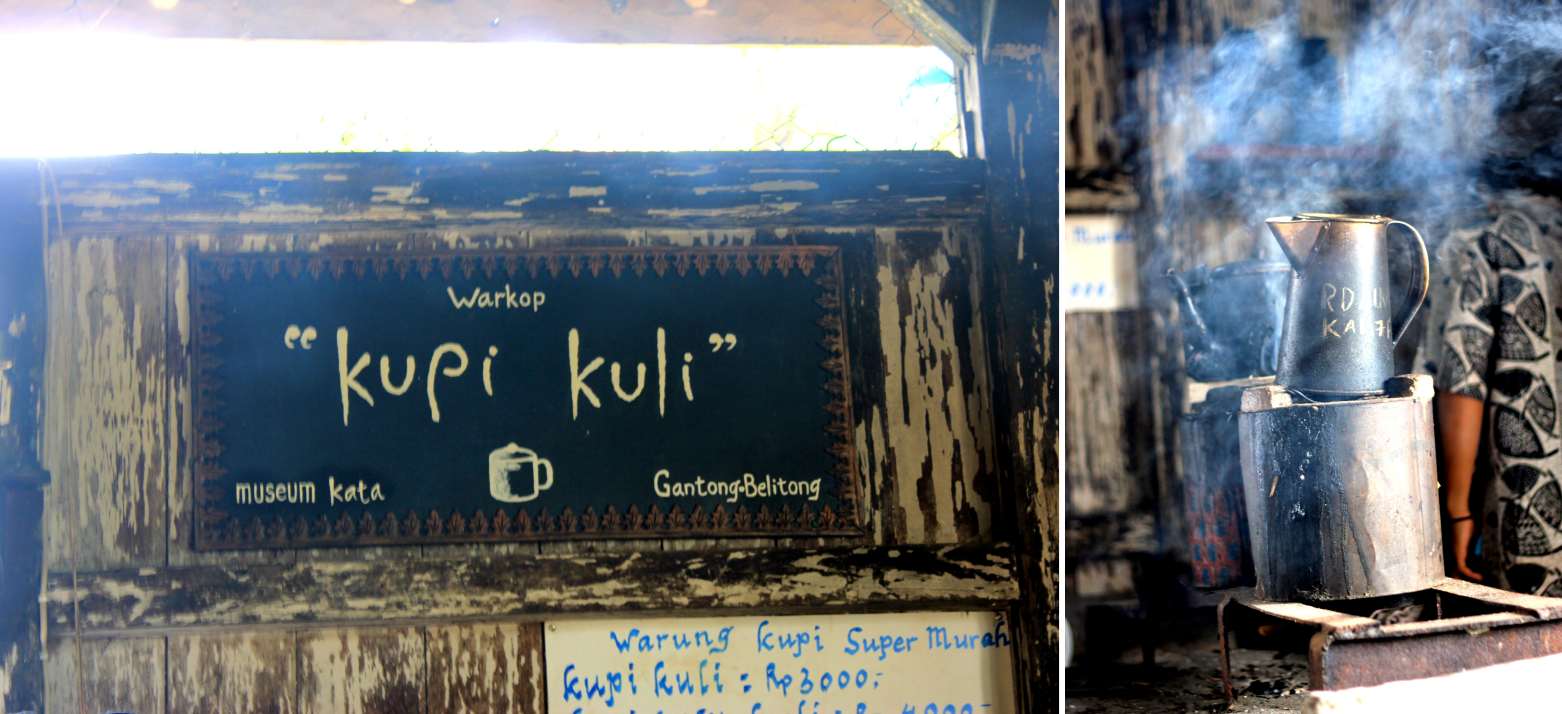 Warkop
“kupi kuli”
museum kata
Gantong-Belitong
Warung kupi Super Murah
kupi kuli : Rp 3000,-